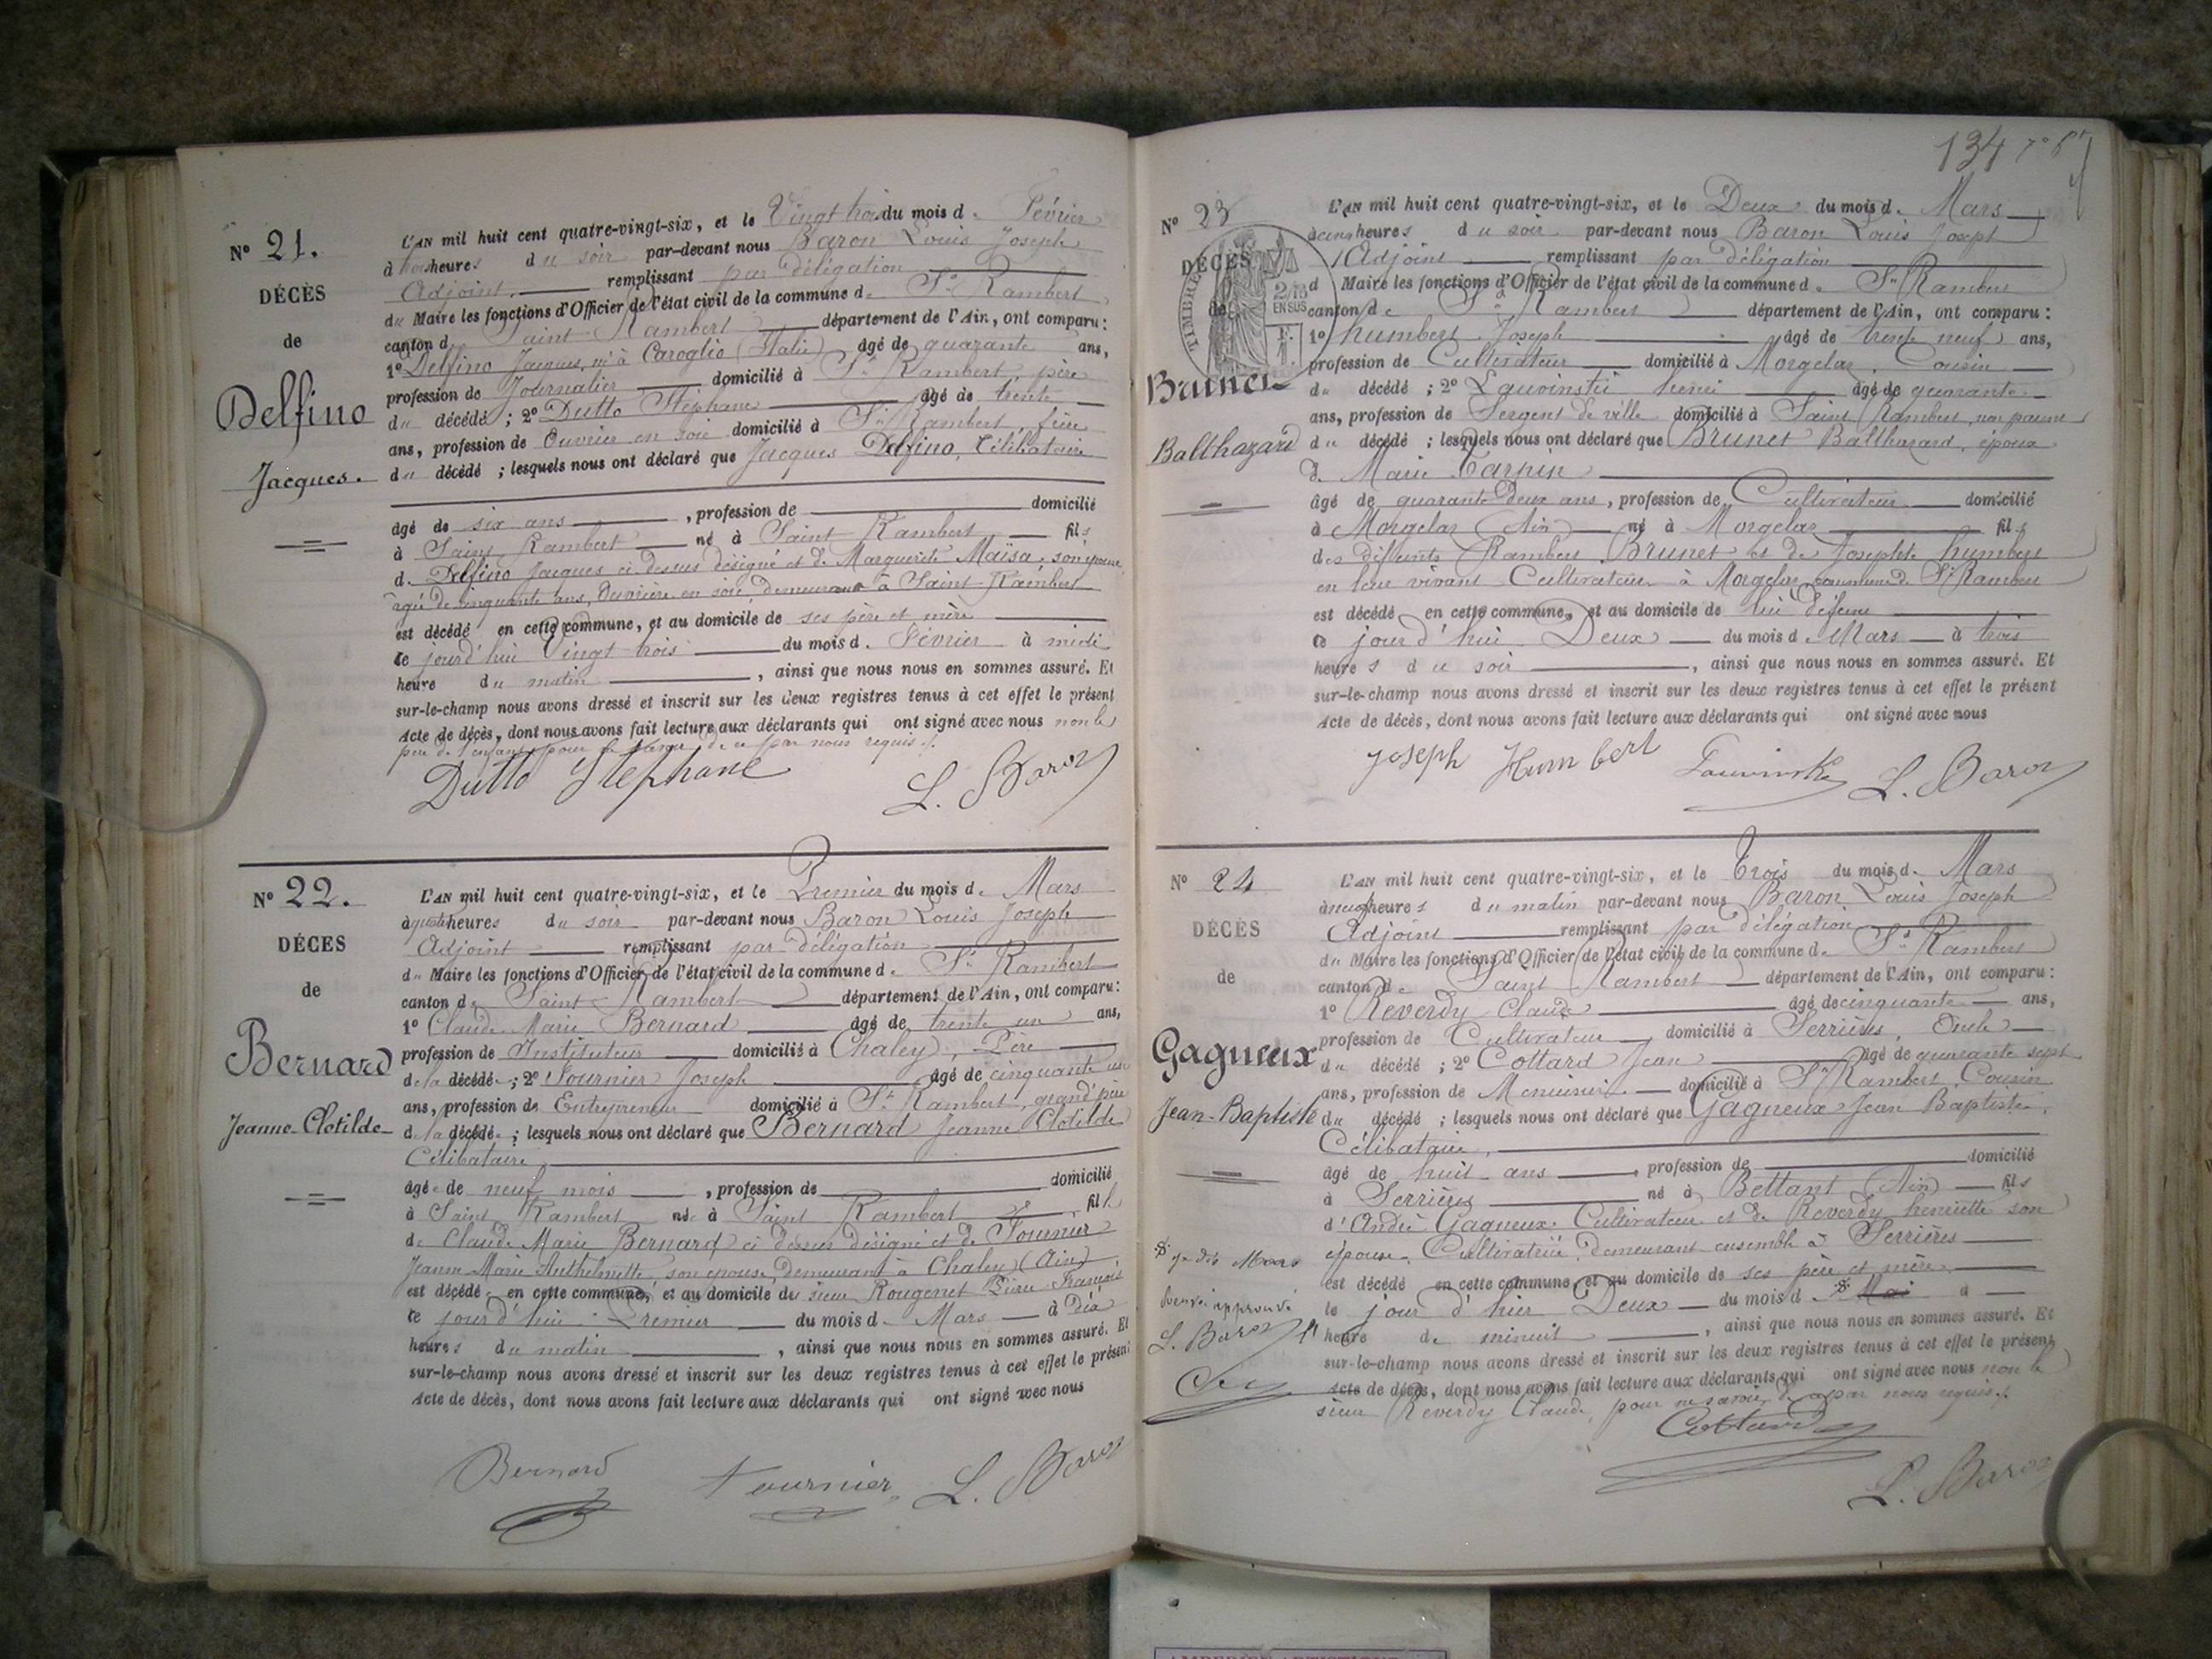 N° 21.
DÉCÈS
de
Delfino
Jacques.
L'AN mil huit cent quatre-vingt-six, et le Vingt trois du mois d. Février
à trois heures du soir par-devant nous Baron Louis Joseph
Adjoint remplissant par délégation
du Maire les fonctions d'Officier de l'état civil de la commune d. St Rambert
canton d. Saint-Rambert département de l'Ain, ont comparu:
1° Delfino Jacques, né à Caroglio (Italie) âgé de quarante ans,
profession de Journalier domicilié à St Rambert, père
du décédé; 2° Dutto Stéphane âgé de trente
ans, profession de Ouvrier en soie domicilié à St Rambert
du décédé; lesquels nous ont déclaré que Jacques Delfino, Célibataire
âgé de six ans, profession de domicilié
à Saint Rambert né à Saint Rambert fils
d. Delfino Jacques ci dessus désigné et de Marguerite Maïsa, son épouse
âgée de cinquante ans, Ouvrière en soie, demeurant à Saint-Rambert
est décédé en cette commune, et au domicile de ses père et mère
ce jourd'hui Vingt trois du mois d. Février à midi
heure du matin, ainsi que nous nous en sommes assuré. Et
sur-le-champ nous avons dressé et inscrit sur les deux registres tenus à cet effet le présent
Acte de décès, dont nous avons fait lecture aux déclarants qui ont signé avec nous non le
père de l'enfant pour ne savoir de ce par nous requis.
Dutto Stephane L. Baron
N° 22.
DÉCES
de
Bernard
Jeanne-Clotilde
L'AN mil huit cent quatre-vingt-six, et le Premier du mois d. Mars
à quatre heures du soir par-devant nous Baron Louis Joseph
Adjoint remplissant par délégation
du Maire les fonctions d'Officier de l'état civil de la commune d. St Rambert
canton de Saint-Rambert département de l'Ain, ont comparu:
1° Claude Marie Bernard âgé de trente un ans,
profession de Instituteur domicilié à Chaley, Père
de la décédée; 2° Fournier Joseph âgé de cinquante un
ans, profession de Entrepreneur domicilié à St Rambert, grand'père
de la décédée; lesquels nous ont déclaré que Bernard Jeanne Clotilde
Célibataire,
âgée de neuf mois, profession de domicilié
à Saint Rambert née à Saint Rambert fille
de Claude Marie Bernard ci dessus désigné et de Fournier
Jeanne Marie Anthelmette, son épouse, demeurant à Chaley (Ain)
est décédée en cette commune, et au domicile du sieur Rougenet Pierre François
ce jourd'hui Premier du mois d. Mars à dix
heures du matin, ainsi que nous nous en sommes assuré. Et
sur-le-champ nous avons dressé et inscrit sur les deux registres tenus à cet effet le présent
Acte de décès, dont nous avons fait lecture aux déclarants qui ont signé avec nous
Bernard Fournier L. Baron
134
N° 23
DÉCÈS
de
TIMBRE
2/10
EN SUS
Brunet
Balthazard
L'AN mil huit cent quatre-vingt-six, et le Deux du mois d. Mars
à cinq heures du soir par-devant nous Baron Louis Joseph
Adjoint remplissant par délégation
d Maire les fonctions d'Officier de l'état civil de la commune d. St Rambert
canton de St Rambert département de l'Ain, ont comparu:
1° humbert Joseph âgé de trente neuf ans,
profession de Cultivateur domicilié à Morgelas, Cousin
du décédé; 2° henri âgé de quarante
ans, profession de Sergent de ville domicilié à Saint Rambert, non parent
du décédé; lesquels nous ont déclaré que Brunet Balthazard, époux
de Marie Carpin
âgé de quarante Deux ans, profession de Cultivateur domicilié
à Morgelas (Ain) né à Morgelas fils
des défunts Rambert Brunet et de Josephte humbert
en leur vivant Cultivateurs à Morgelas, commune de St Rambert
est décédé en cette commune, et au domicile de lui défunt
ce jourd'hui Deux du mois d. Mars à trois
heures du soir, ainsi que nous nous en sommes assuré. Et
sur-le-champ nous avons dressé et inscrit sur les deux registres tenus à cet effet le présent
Acte de décès, dont nous avons fait lecture aux déclarants qui ont signé avec nous
Joseph Humbert L. Baron
N° 24
DÉCÈS
de
Gagneux
Jean-Baptiste
L'AN mil huit cent quatre-vingt-six, et le Trois du mois d. Mars
à neuf heures du matin par-devant nous Baron Louis Joseph
Adjoint remplissant par délégation
du Maire les fonctions d'Officier de l'état civil de la commune d. St Rambert
canton d. Saint Rambert département de l'Ain, ont comparu:
1° Reverdy Claude âgé de cinquante ans,
profession de Cultivateur domicilié à Serrières, Oncle
du décédé; 2° Cottard Jean âgé de quarante sept
ans, profession de Menuisier domicilié à St Rambert, Cousin
du décédé; lesquels nous ont déclaré que Gagneux Jean Baptiste,
Célibataire,
âgé de huit ans, profession de domicilié
à Serrières né à Bettant (Ain) fils
d'André Gagneux Cultivateur et de Reverdy henriette son
épouse, Cultivatrice, demeurant ensemble à Serrières
est décédé en cette commune, et au domicile de ses père et mère
le jour d'hier Deux du mois d. Mai à
heure de minuit, ainsi que nous nous en sommes assuré. Et
sur-le-champ nous avons dressé et inscrit sur les deux registres tenus à cet effet le présent
Acte de décès, dont nous avons fait lecture aux déclarants qui ont signé avec nous non le
sieur Reverdy Claude, pour ne savoir de ce par nous requis.
Mars
approuvé
L. Baron
Cottard
L. Baron